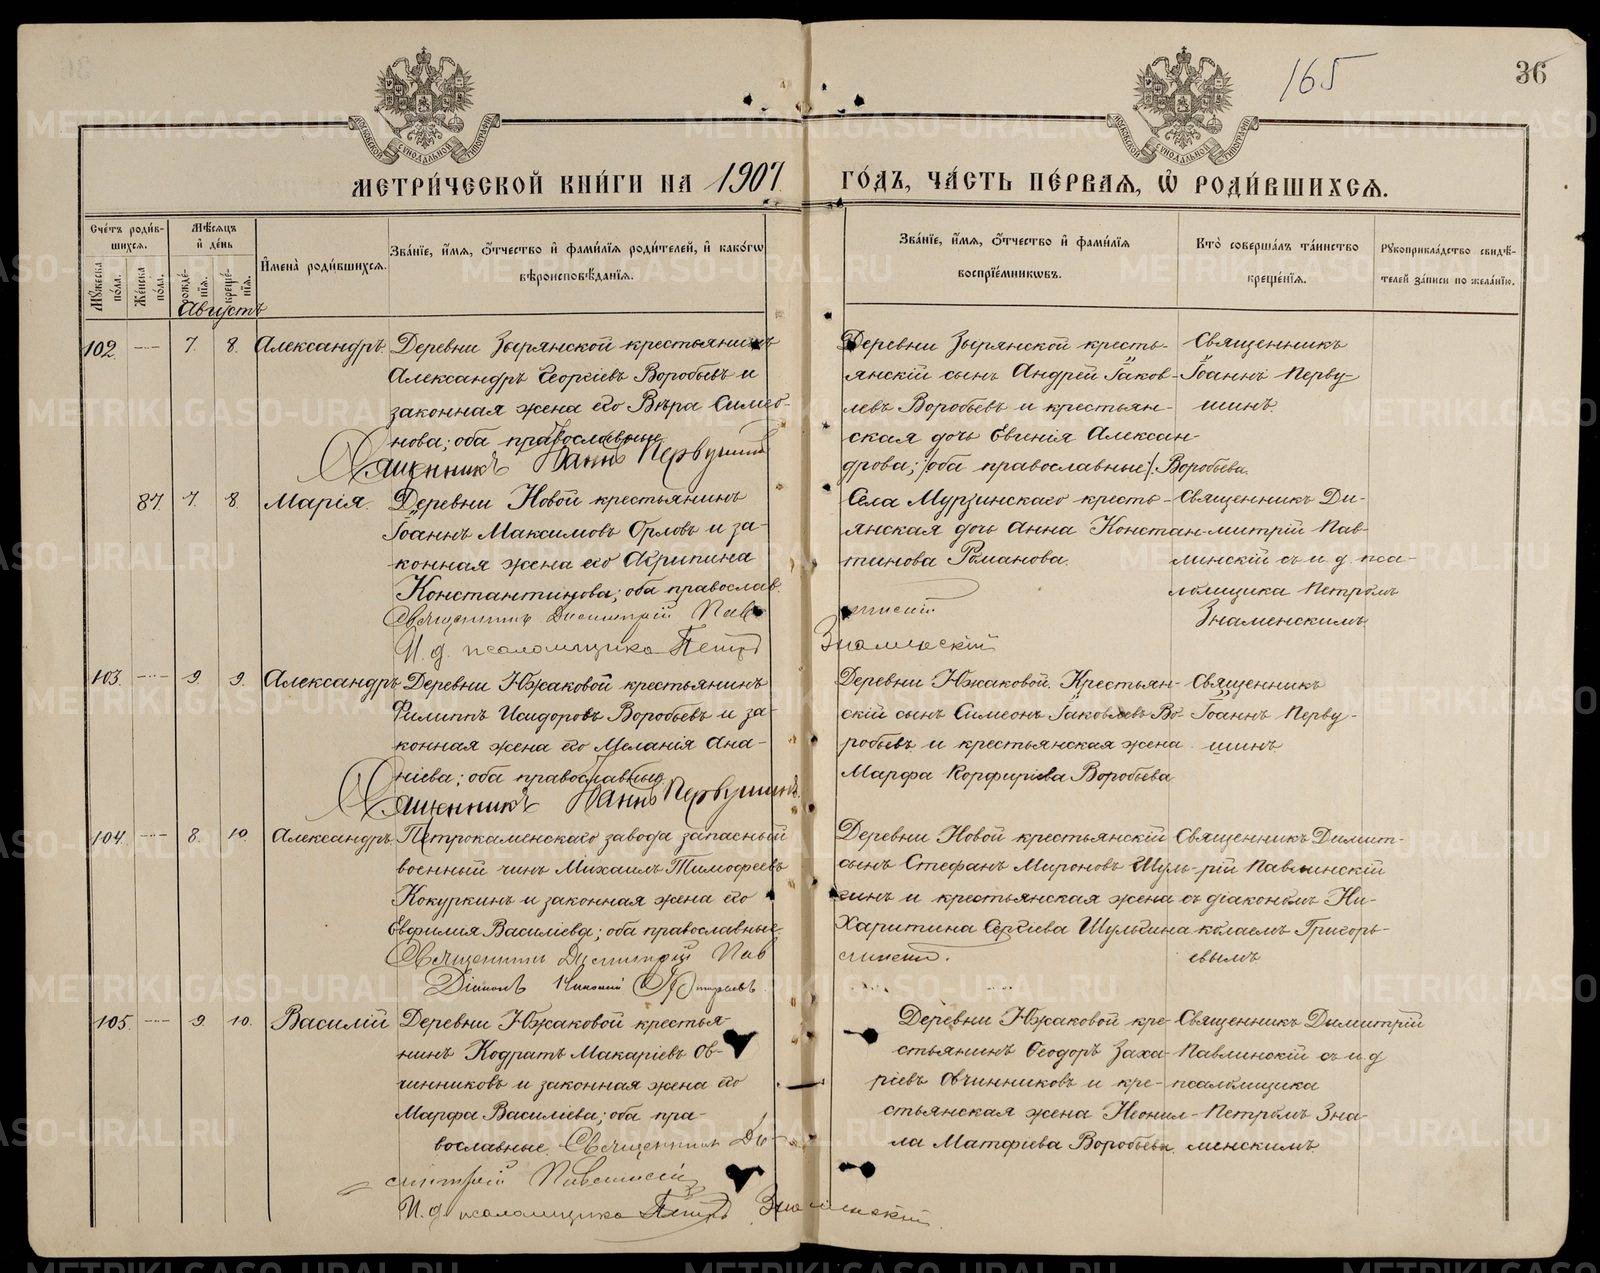 165
36
МЕТРИ́ЧЕСКОЙ КНИ́ГИ НА 1907 ГО́ДЪ, ЧА́СТЬ ПЕ́РВАѦ, Ѡ҆ РОДИ́ВШИХСѦ.
Сче́тъ роди́в-
шихсѧ.
Мꙋ́жеска по́ла.
Же́нска по́ла.
Мѣ́сѧцъ
и҆ де́нь
рожде́-
нїѧ.
креще́-
нїѧ.
И҆мена̀ роди́вшихсѧ.
Зва́нїе, и҆́мѧ, ѻ҆́тчество и҆ фами́лїѧ роди́телей, и҆ како́гѡ
вѣроисповѣ́данїѧ.
Зва́нїе, и҆́мѧ, ѻ҆́тчество и҆ фами́лїѧ
воспрїе́мниковъ.
Кто̀ соверша́лъ та́инство
креще́нїѧ.
Рꙋкоприкла́дство свидѣ́-
телей за́писи по жела́нїю.
Августъ
102. — 7. 8. Александръ.
Деревни Зырянской крестьянинъ
Александръ Георгіевъ Воробьевъ и
законная жена его Вѣра Симео-
нова; оба православные
Священникъ Іоаннъ Первушинъ
Деревни Зырянской кресть-
янскій сынъ Андрей Іаков-
левъ Воробьевъ и крестьян-
ская дочь Евгенія Алексан-
дрова; /оба православные/. Воробьева.
Священникъ
Іоаннъ Перву-
шинъ.
87. 7. 8. Марія.
Деревни Новой крестьянинъ
Іоаннъ Максимовъ Орловъ и за-
конная жена его Агрипина
Константинова; оба православ.
Священникъ Димитрій Пав
линскій
И. д. псаломщика Петръ Знаменскій
Села Мурзинскаго кресть-
янская дочь Анна Констан-
тинова Романова.
Священникъ Ди-
митрій Пав-
линскій съ и. д. пса-
ломщика Петромъ
Знаменскимъ
103. — 9. 9. Александръ
Деревни Южаковой крестьянинъ
Филиппъ Исидоровъ Воробьевъ и за-
конная жена его Меланія Ана-
ніева; оба православные
Священникъ Іоаннъ Первушинъ.
Деревни Южаковой. Крестьян-
скій сынъ Симеонъ Іаковлевъ Во-
робьевъ и крестьянская жена
Марфа Корфиріева Воробьева
Священникъ
Іоаннъ Перву-
шинъ
104. — 8. 10. Александръ.
Петрокаменскаго завода запасный
военный чинъ Михаилъ Тимофеевъ
Кокуркинъ и законная жена его
Евфилия Василіева; оба православные
Священникъ Димитрій Пав
линскій.
Діаконъ Николай Григорьевъ.
Деревни Новой крестьянскій
сынъ Стефанъ Мироновъ Шуль-
гинъ и крестьянская жена
Харитина Сергіева Шульгина
Священникъ Димит-
рій Павлинскій
съ діакономъ Ни-
колаемъ Григорь-
евымъ
105. — 9. 10. Василій
Деревни Южаковой крестья-
нинъ Кодратъ Макаріевъ Ов-
чинниковъ и законная жена его
Марфа Василіева; оба пра-
вославные. Священникъ Ди-
митрій Павлинскій
И. д. псаломщика Петръ Знаменскій.
Деревни Южаковой кре-
стьянинъ Ѳеодоръ Заха-
ріевъ Овчинниковъ и кре-
стьянская жена Неонил-
ла Матфіева Воробьева
Священникъ Димитрій
Павлинскій съ и. д
псаломщика
Петромъ Зна-
менскимъ
METRIKI.GASO-URAL.RU